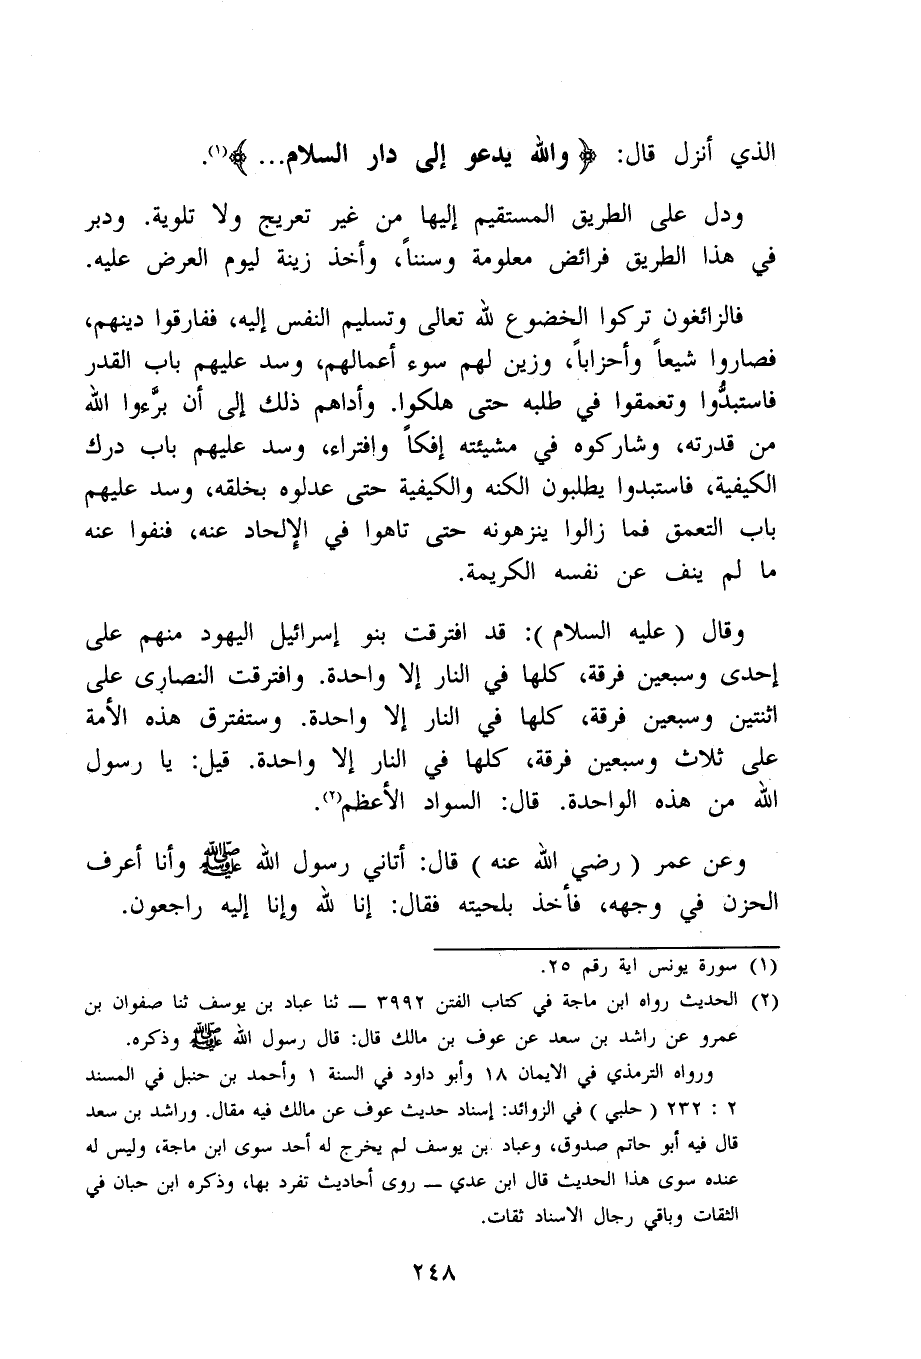 الذي أنزل قال: ﴿ والله يدعو إلى دار السلام... ﴾(١).
ودل على الطريق المستقيم إليها من غير تعريج ولا تلوية. ودبر
في هذا الطريق فرائض معلومة وسنناً، وأخذ زينة ليوم العرض عليه.
فالزائغون تركوا الخضوع لله تعالى وتسليم النفس إليه، ففارقوا دينهم،
فصاروا شيعاً وأحزاباً، وزين لهم سوء أعمالهم، وسد عليهم باب القدر
فاستبدُّوا وتعمقوا في طلبه حتى هلكوا. وأداهم ذلك إلى أن برَّءوا الله
من قدرته، وشاركوه في مشيئته إفكاً وافتراء، وسد عليهم باب درك
الكيفية، فاستبدوا يطلبون الكنه والكيفية حتى عدلوه بخلقه، وسد عليهم
باب التعمق فما زالوا ينزهونه حتى تاهوا في الإلحاد عنه، فنفوا عنه
ما لم ينف عن نفسه الكريمة.
وقال ( عليه السلام ): قد افترقت بنو إسرائيل اليهود منهم على
إحدى وسبعين فرقة، كلها في النار إلا واحدة. وافترقت النصارى على
اثنتين وسبعين فرقة، كلها في النار إلا واحدة. وستفترق هذه الأمة
على ثلاث وسبعين فرقة، كلها في النار إلا واحدة. قيل: يا رسول
الله من هذه الواحدة. قال: السواد الأعظم(٢).
وعن عمر ( رضي الله عنه ) قال: أتاني رسول الله ﷺ وأنا أعرف
الحزن في وجهه، فأخذ بلحيته فقال: إنا لله وإنا إليه راجعون.
(١) سورة يونس اية رقم ٢٥.
(٢) الحديث رواه ابن ماجة في كتاب الفتن ٣٩٩٢ ـ ثنا عباد بن يوسف ثنا صفوان بن
عمرو عن راشد بن سعد عن عوف بن مالك قال: قال رسول الله ﷺ وذكره.
ورواه الترمذي في الايمان ١٨ وأبو داود في السنة ١ وأحمد بن حنبل في المسند
٢ : ٢٣٢ ( حلبي ) في الزوائد: إسناد حديث عوف عن مالك فيه مقال. وراشد بن سعد
قال فيه أبو حاتم صدوق، وعباد بن يوسف لم يخرج له أحد سوى ابن ماجة، وليس له
عنده سوى هذا الحديث قال ابن عدي ـ روى أحاديث تفرد بها، وذكره ابن حبان في
الثقات وباقي رجال الاسناد ثقات.
٢٤٨